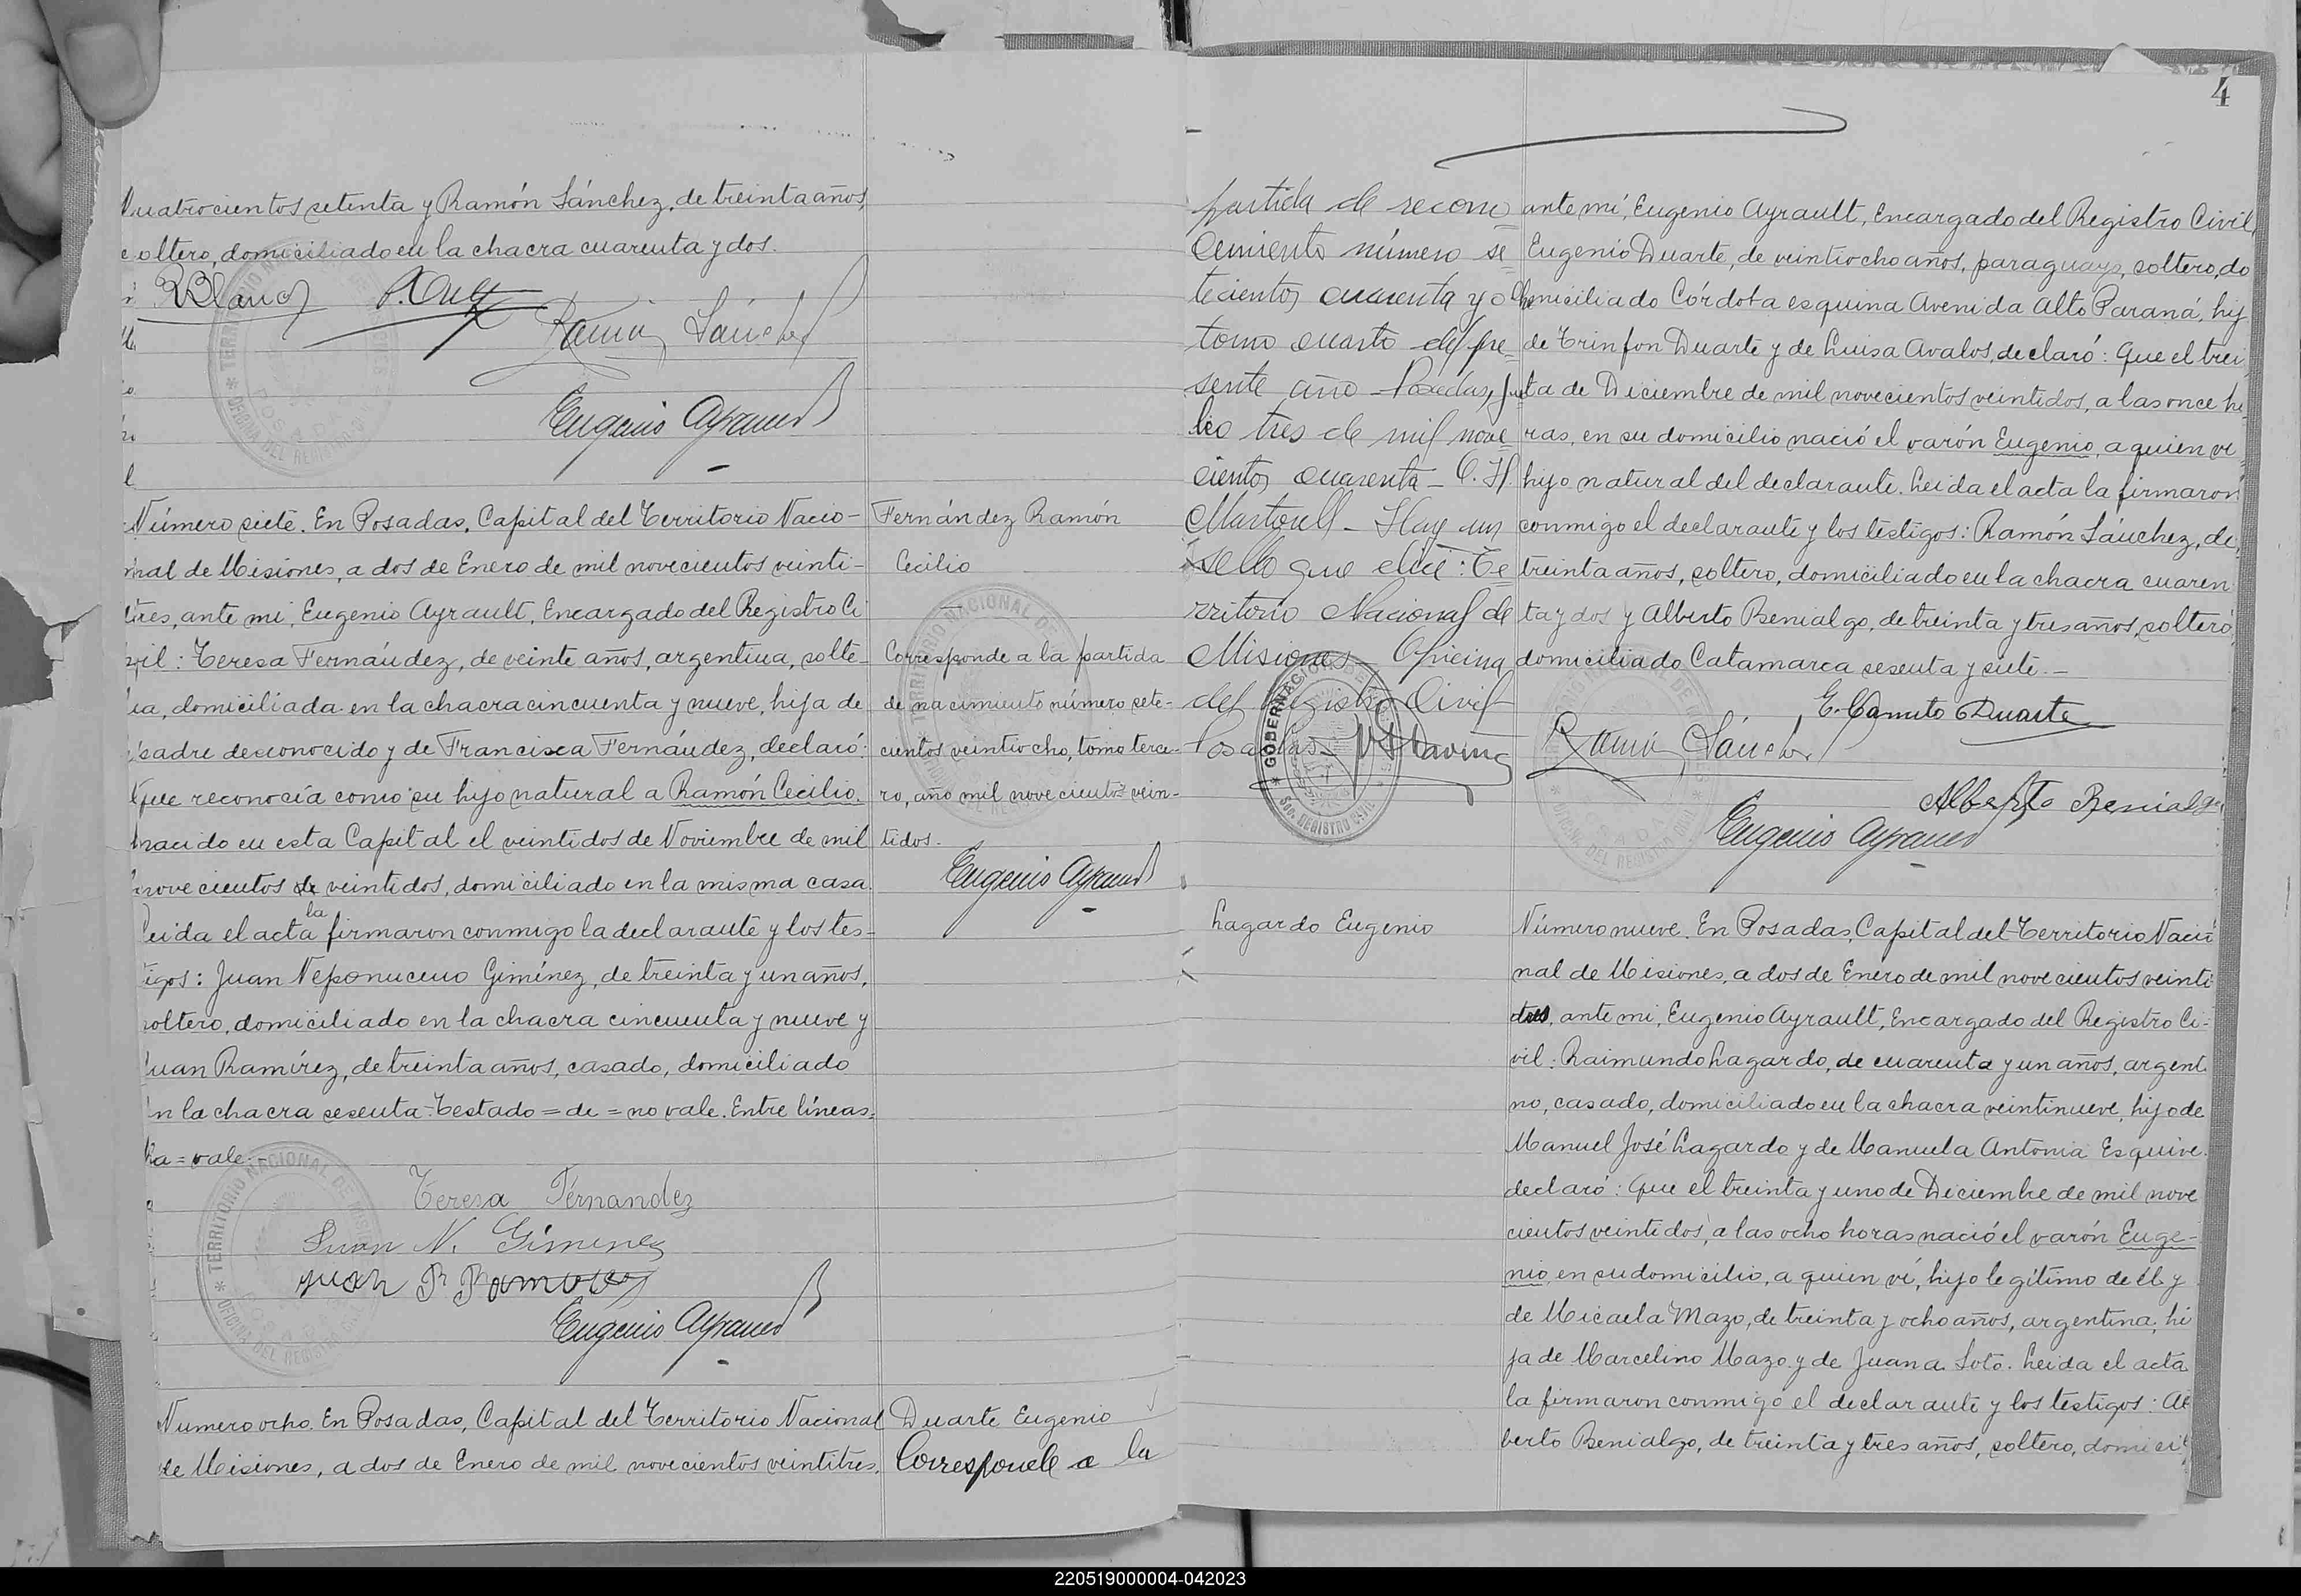 cuatrocientos setenta y Ramón Sánchez, de treinta años,
soltero, domiciliado en la chacra cuarenta y dos.
R Blanc
Ramón Sánchez
Eugenio Ayrault
Número siete. En Posadas, Capital del Territorio Nacio-
nal de Misiones, a dos de Enero de mil novecientos veinti-
tres, ante mi, Eugenio Ayrault, Encargado del Registro Ci
vil: Teresa Fernández, de veinte años, argentina, solte-
ra, domiciliada en la chacra cincuenta y nueve, hija de
padre desconocido y de Francisca Fernández, declaró:
Que reconocía como su hijo natural a Ramón Cecilio,
nacido en esta Capital el veintidos de Noviembre de mil
novecientos de veintidos, domiciliado en la misma casa.
Leida el acta la firmaron conmigo la declarante y los tes-
tigos: Juan Neponuceno Giménez, de treinta y un años,
soltero, domiciliado en la chacra cincuenta y nueve y
Juan Ramírez, de treinta años, casado, domiciliado
en la chacra sesenta. Testado = de = no vale. Entre líneas =
la = vale.-
Teresa Fernandez
Juan N. Gimenez
Juan R Ramirez
Eugenio Ayrault
Numero ocho. En Posadas, Capital del Territorio Nacional
de Misiones, a dos de Enero de mil novecientos veintitres,
Fernández Ramón
Cecilio
Corresponde a la partida
de nacimiento número sete-
cientos veintiocho, tomo terce-
ro, año mil novecientos vein-
tidos.
Eugenio Ayrault
Duarte Eugenio
Corresponde a la
4
partida de recono
cimiento número se
tecientos cuarenta y o
tomo cuarto del pre-
sente año - Posadas, Ju
lio tres de mil nove
cientos cuarenta - C. H.
Martorell - Hay un
sello que dice: Te
rritorio Nacional de
Misiones - Oficina
del Registro Civil
Posadas -
GOBERNACION DE
REGISTRO CIVIL
ante mí, Eugenio Ayrault, Encargado del Registro Civil,
Eugenio Duarte, de veintiocho años, paraguayo, soltero, do
miciliado Córdoba esquina Avenida Alto Paraná, hij
de Trinfon Duarte y de Luisa Avalos, declaró: Que el trei
ta de Diciembre de mil novecientos veintidos, a las once ho
ras, en su domicilio nació el varón Eugenio, a quien vi
hijo natural del declarante. Leida el acta la firmaron
conmigo el declarante y los testigos: Ramón Sánchez, de
treinta años, soltero, domiciliado en la chacra cuaren
ta y dos y Alberto Benialgo, de treinta y tres años, soltero,
domiciliado Catamarca sesenta y siete.-
E. Canuto Duarte
Ramón Sánchez
Alberto Benialgo
Eugenio Ayrault
Lagardo Eugenio
Número nueve. En Posadas, Capital del Territorio Nacio
nal de Misiones, a dos de Enero de mil novecientos veinti
tres, ante mi, Eugenio Ayrault, Encargado del Registro Ci-
vil: Raimundo Lagardo, de cuarenta y un años, argenti
no, casado, domiciliado en la chacra veintinueve, hijo de
Manuel José Lagardo y de Manuela Antonia Esquive
declaró: Que el treinta y uno de Diciembre de mil nove
cientos veintidos, a las ocho horas nació el varón Euge-
nio, en su domicilio, a quien ví, hijo legítimo de él y
de Micaela Mazo, de treinta y ocho años, argentina, hi
ja de Marcelino Mazo y de Juana Soto. Leida el acta
la firmaron conmigo el declarante y los testigos: Al
berto Benialgo, de treinta y tres años, soltero, domicili
220519000004-042023